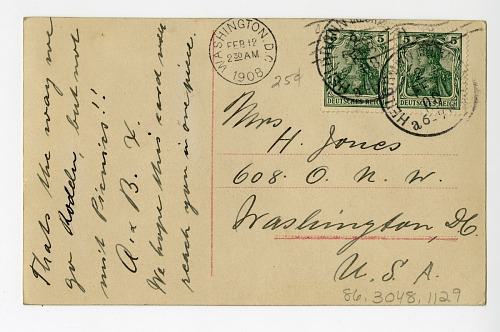 Thats the way we
go Rodeln but not
mit Picnics!!
A. & B. X.
We hope this card will
reach you in one piece.
WASHINGTON, D.C.
FEB 12
2 30 AM
1908
25¢
5
5
DEUTSCHES REICH
DEUTSCHES REICH
Mrs
H. Jones
608. O. N. W.
Washington, D.C.
U. S. A.
86.3048.1129